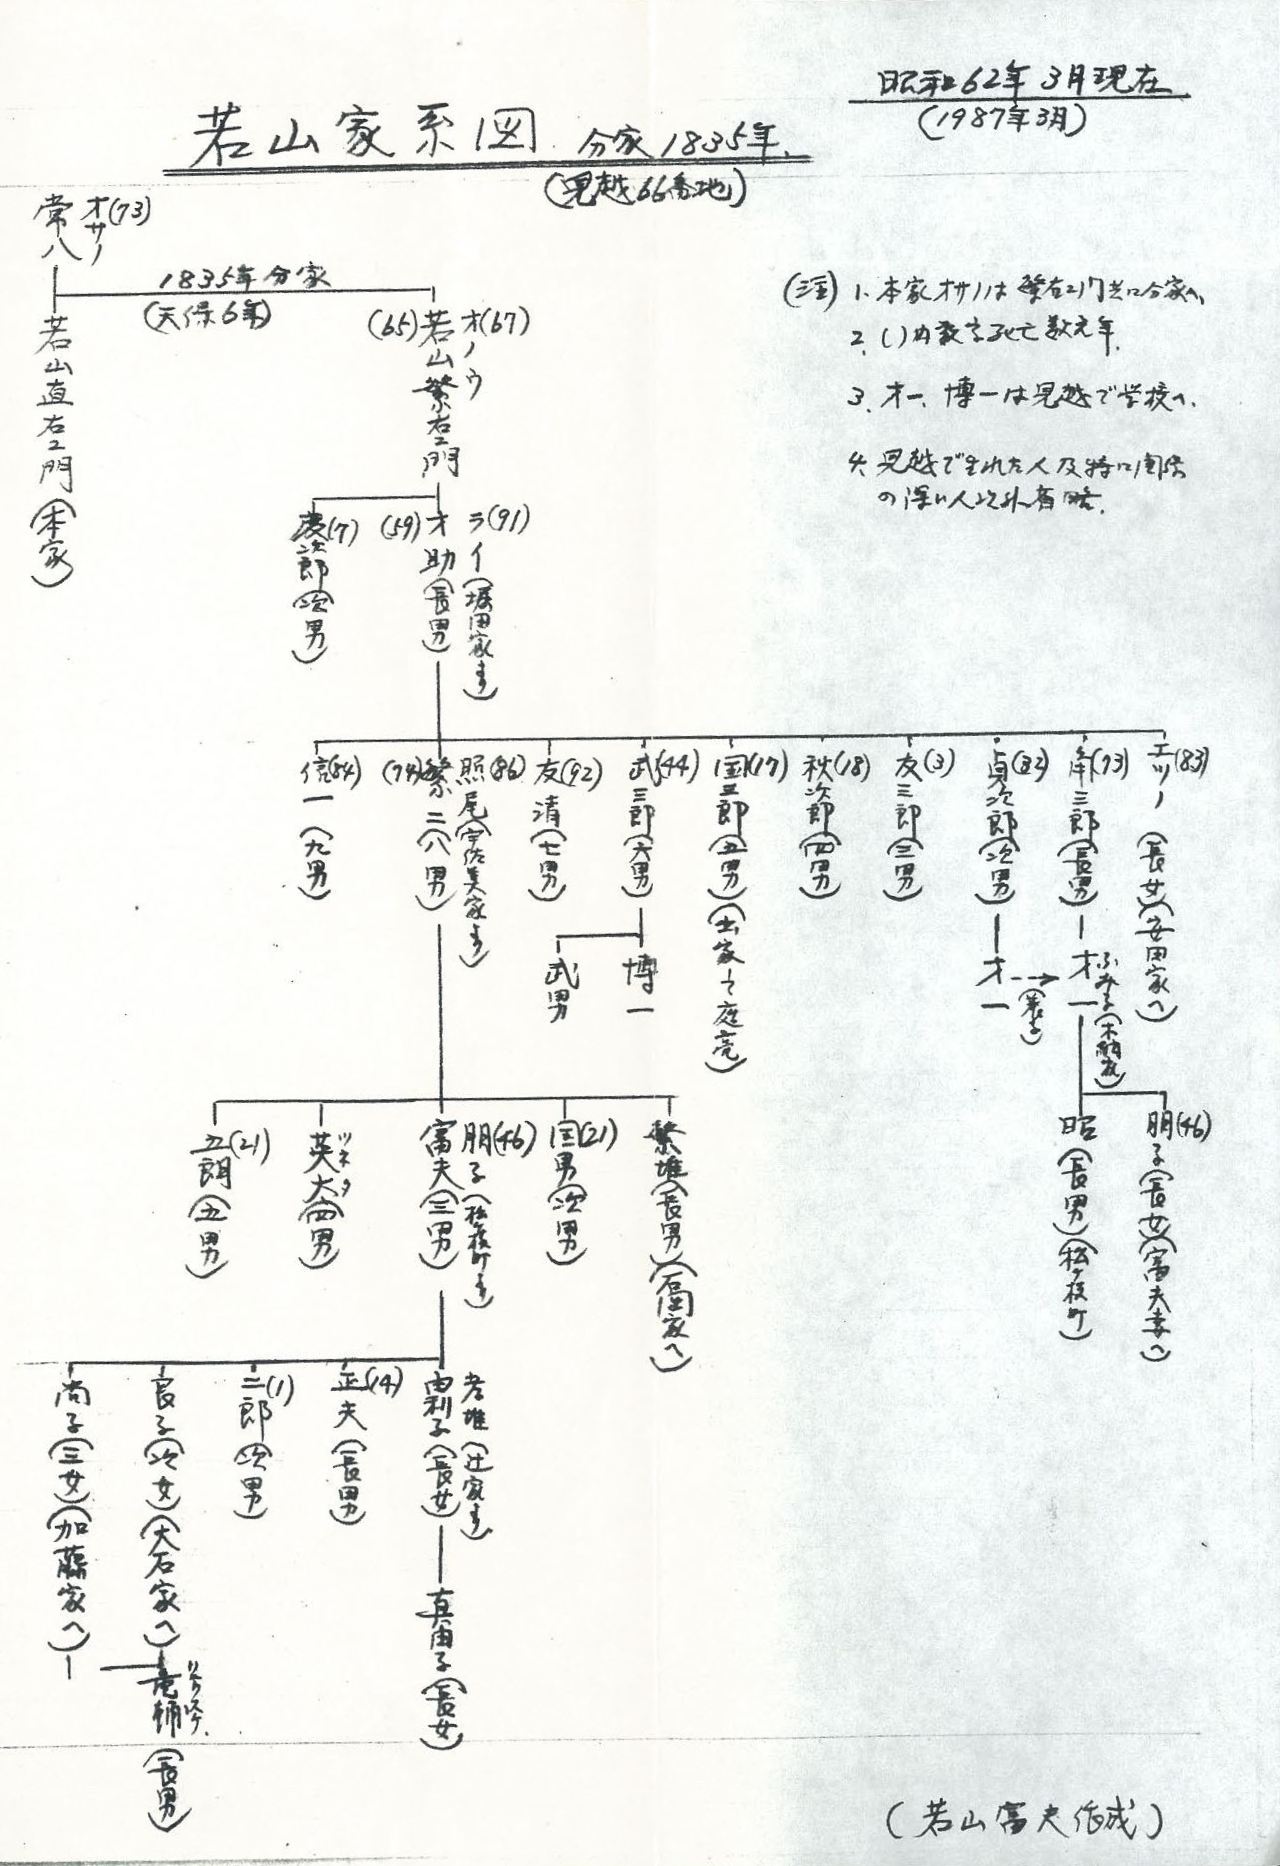 昭和62年3月現在
(1987年3月)
若山家系図 分家1835年
(見越66番地)
常八
オサノ(73)
1835年分家
(天保6年)
若山直右ヱ門(本家)
(65)若山繁右ヱ門
オノウ(67)
(注) 1.本家オサノは繁右ヱ門共に分家へ
2.()内数字死亡数え年
3.才一、博一は見越で学校へ.
4.見越で生れた人及特に関係
の深い人以外省略.
慶次郎(7)(次男)
(59)才助(長男)
ライ(91)(堀田家より)
信一(84)(九男)
(74)繁二(八男)
照尾(86)(宇佐美家より)
友清(92)(七男)
武三郎(44)(六男)
国三郎(17)(五男)(出家して庭亮)
秋次郎(18)(四男)
友三郎(3)(三男)
貞次郎(32)(次男)
角三郎(73)(長男)
エツノ(83)(長女)(安田家へ)
武男
博一
才一
(養子)
才一
ふみ子
五朗(21)(五男)
英大(四男)
ツネタ
富夫(三男)
朋子(46)(松ヶ枝町より)
国男(21)(次男)
繁雄(長男)
昭(長男)(松ヶ枝町)
朋子(46)(長女)(富夫妻へ)
尚子(三女)(加藤家へ)
良子(次女)(大石家へ)
三郎(1)(次男)
正夫(14)(長男)
由利子(長女)
孝雄(辻家より)
竜輔(長男)
リュウスケ
真由子(長女)
(若山富夫作成)